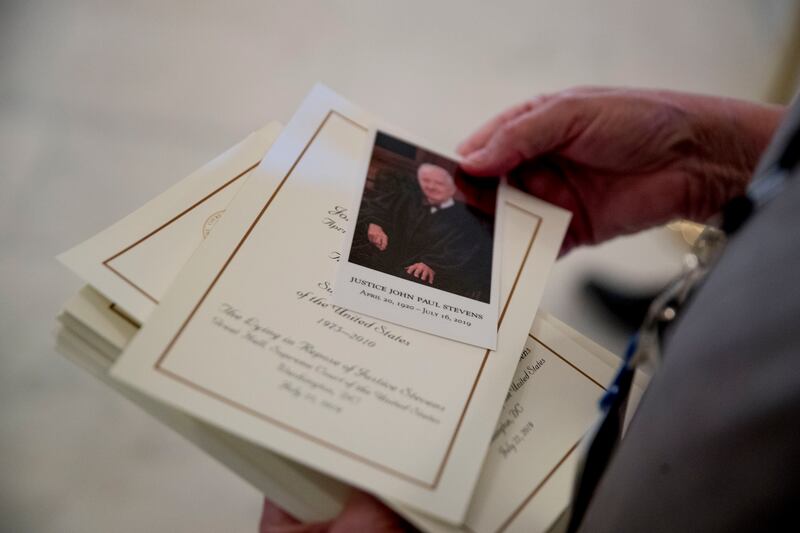 JUSTICE JOHN PAUL STEVENS
APRIL 20, 1920 – JULY 16, 2019
Jo
Apr
Su
of the United States
1975–2010
The Lying in Repose of Justice Stevens
Great Hall, Supreme Court of the United States
Washington, DC
July 22, 2019
United States
ngton, DC
July 22, 2019